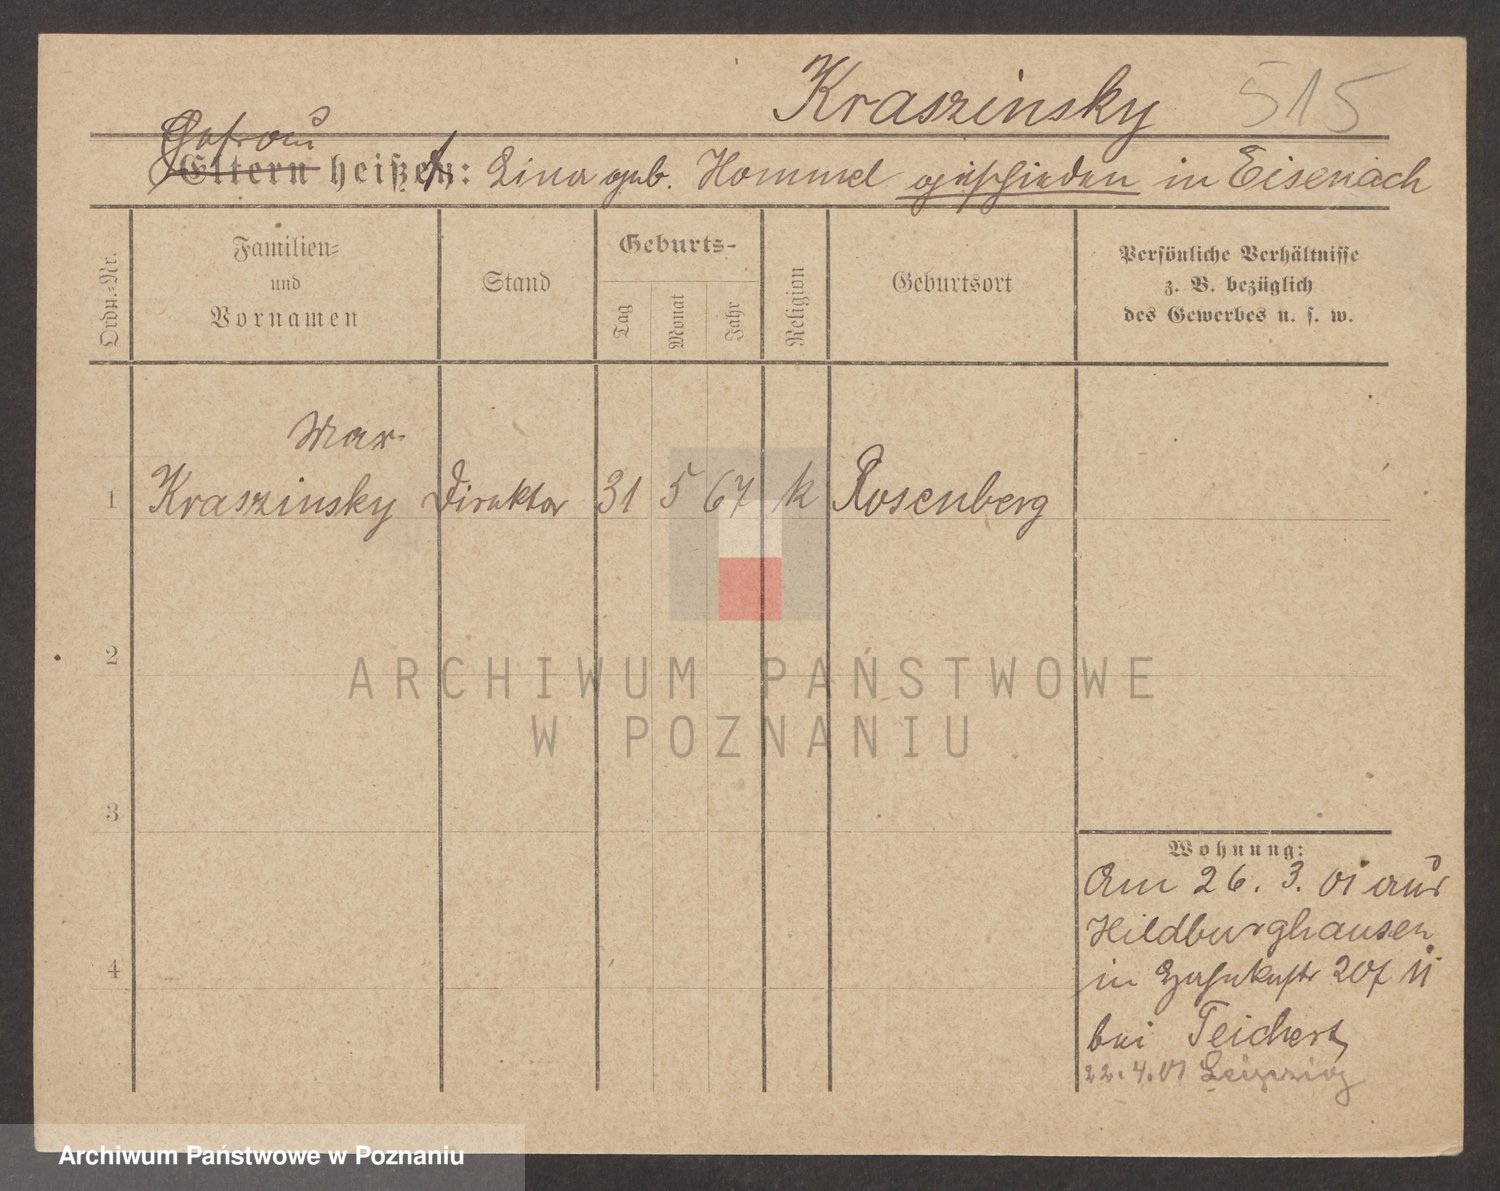 Kraszinsky 515
Ehefrau
Eltern heißen: Lina geb. Hommel geschieden in Eisenach
Ordn.-Nr.
Familien-
und
Vornamen
Stand
Geburts-
Tag
Monat
Jahr
Religion
Geburtsort
Persönliche Verhältnisse
z. B. bezüglich
des Gewerbes u. s. w.
Max
1 Kraszinsky Direktor 31 5 67 k Rosenberg
2
3
4
Wohnung:
Am 26. 3. 01 aus
Hildburghausen
in 20f II
bei Teichert
22.4.01 Leipzig
ARCHIWUM PAŃSTWOWE
W POZNANIU
Archiwum Państwowe w Poznaniu